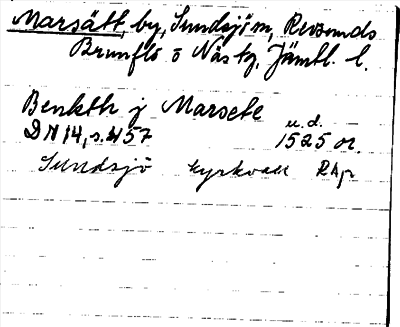 Marsätt, by, Sundsjö sn, Revsunds
Brunflo o Näs tg, Jämtl. l.
Benkth j Marsete
u.d.
DN 14, s. 457 1525 or.
Sundsjö kyrkoark RAp